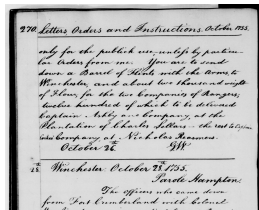 270. Letters, Orders and Instructions. October 1755.
only for the publick use, unless by particu-
lar Orders from me. You are to send
down a Barrel of Flints with the Arms, to
Winchester, and about two thousand weight
of Flour, for the two Companies of Rangers;
twelve hundred of which to be delivered
Captain Ashby and Company, at the
Plantation of Charles Sellars - the rest to Captain
Cocks Company, at Nicholas Reasmers.
October 28th. GW
28th. Winchester October 28th. 1755.
Parole Hampton.
The Officers who came down
from Fort Cumberland with Colonel